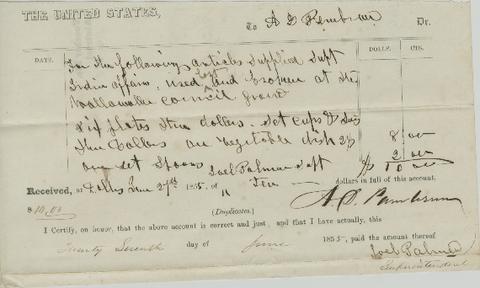 THE UNITED STATES,
To A D Pambrun Dr.
DATE. DOLLS. CTS.
For the following articles supplied Supt
Indian affairs, used and broken at the
lost
Wallawalla council ground
Six plates three dollars. Set cups &
three dollars one vegetable dish 2 8 00
one set spoons 2 00
Joel Palmer Supt $ 10 00
Received, at Dalles June 27th 1855, of Ten dollars in full of this account.
$ 10.00 A. D. Pambrun
(Duplicates.)
I Certify, on honor, that the above account is correct and just, and that I have actually, this
Twenty Seventh day of June 1855, paid the amount thereof
Joel Palmer
Superintendent